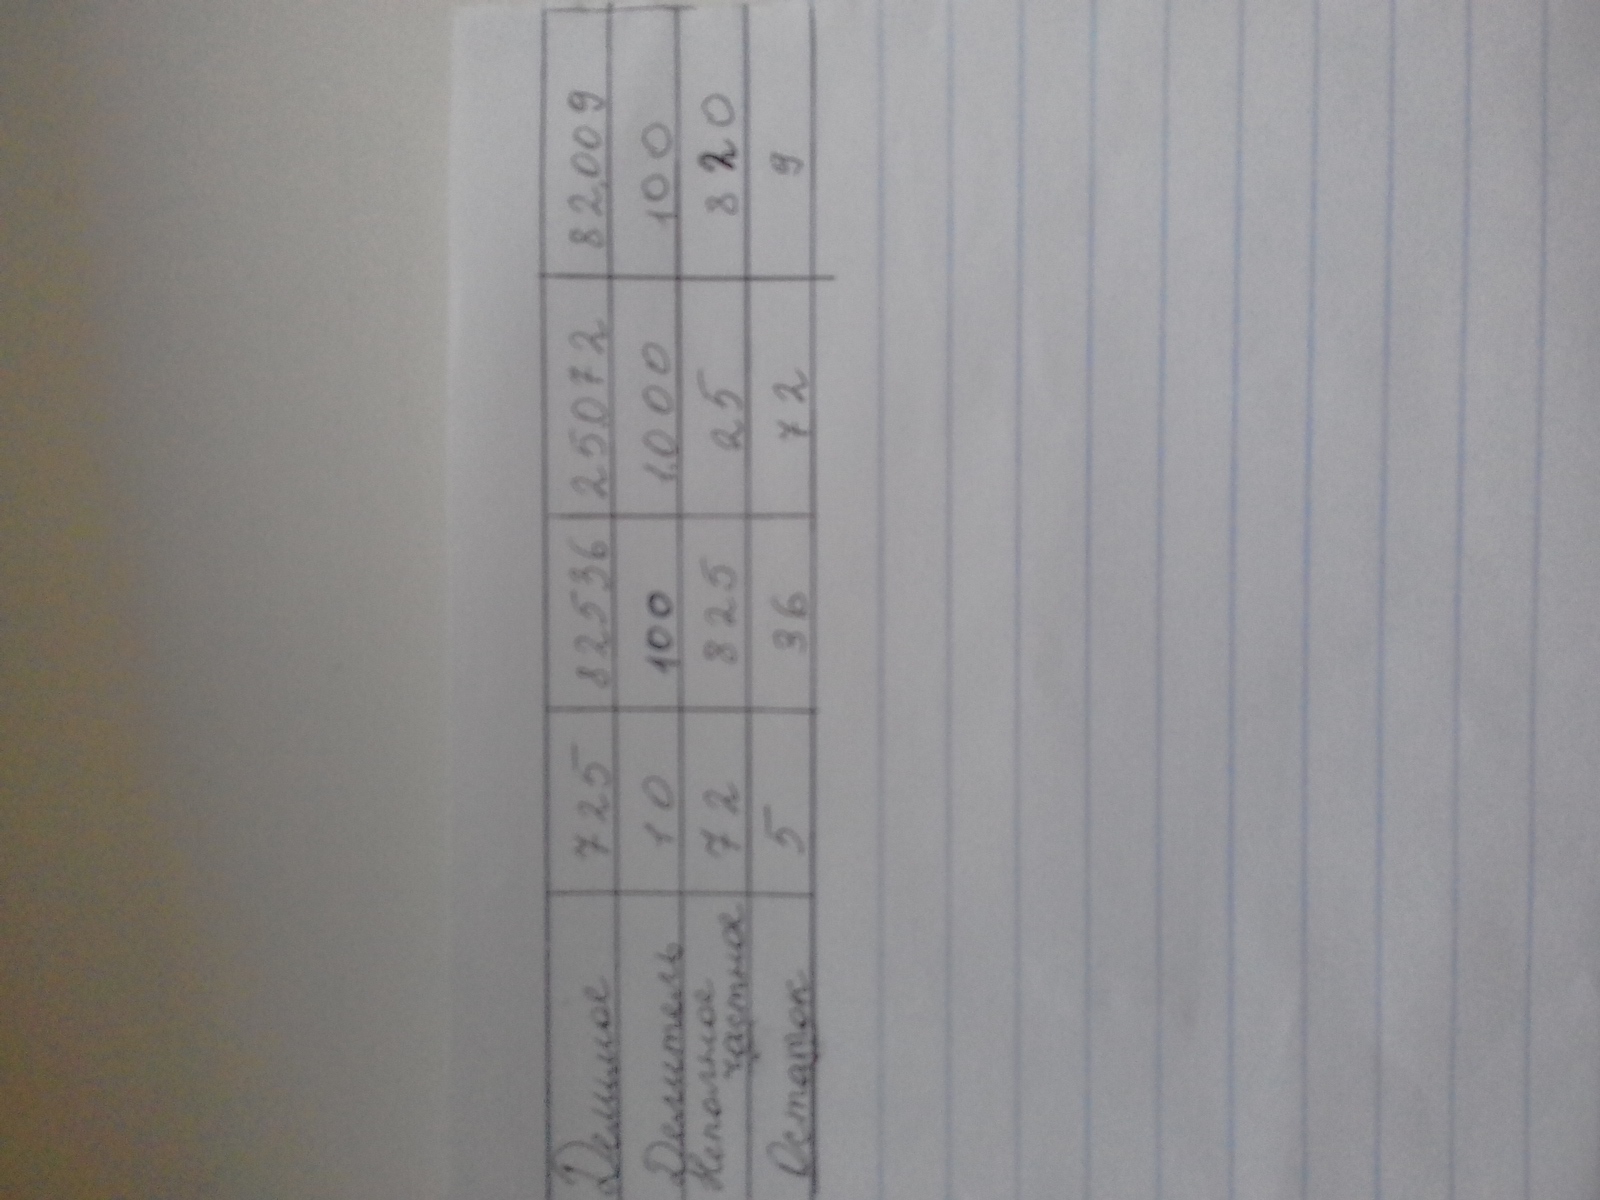 Делимое 725 82536 25072 82009
Делитель 10 100 1000 100
Неполное 72 825 25 820
частное
Остаток 5 36 72 9